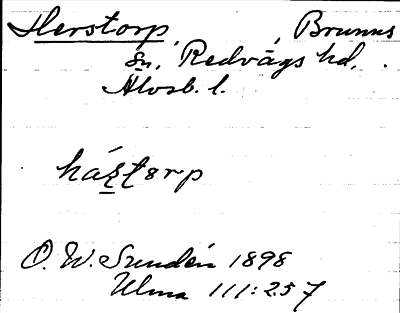 Herstorp, Brunns
sn, Redvägs hd.
Älvsb. l.
háştorp
O. W. Sundén 1898
Ulma 111:257